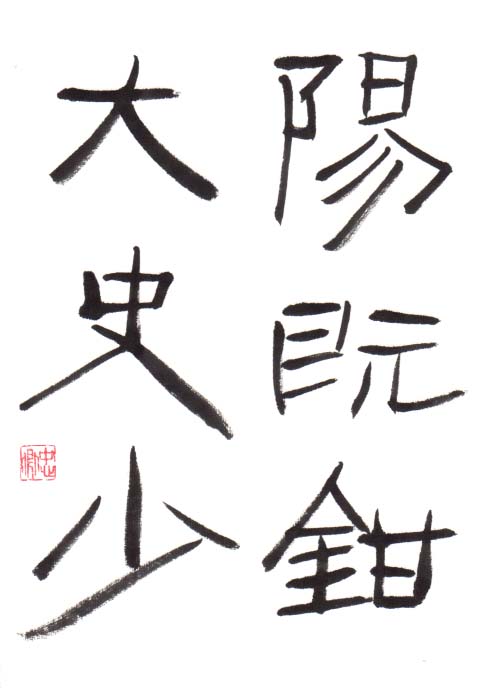 陽鉗
大史少